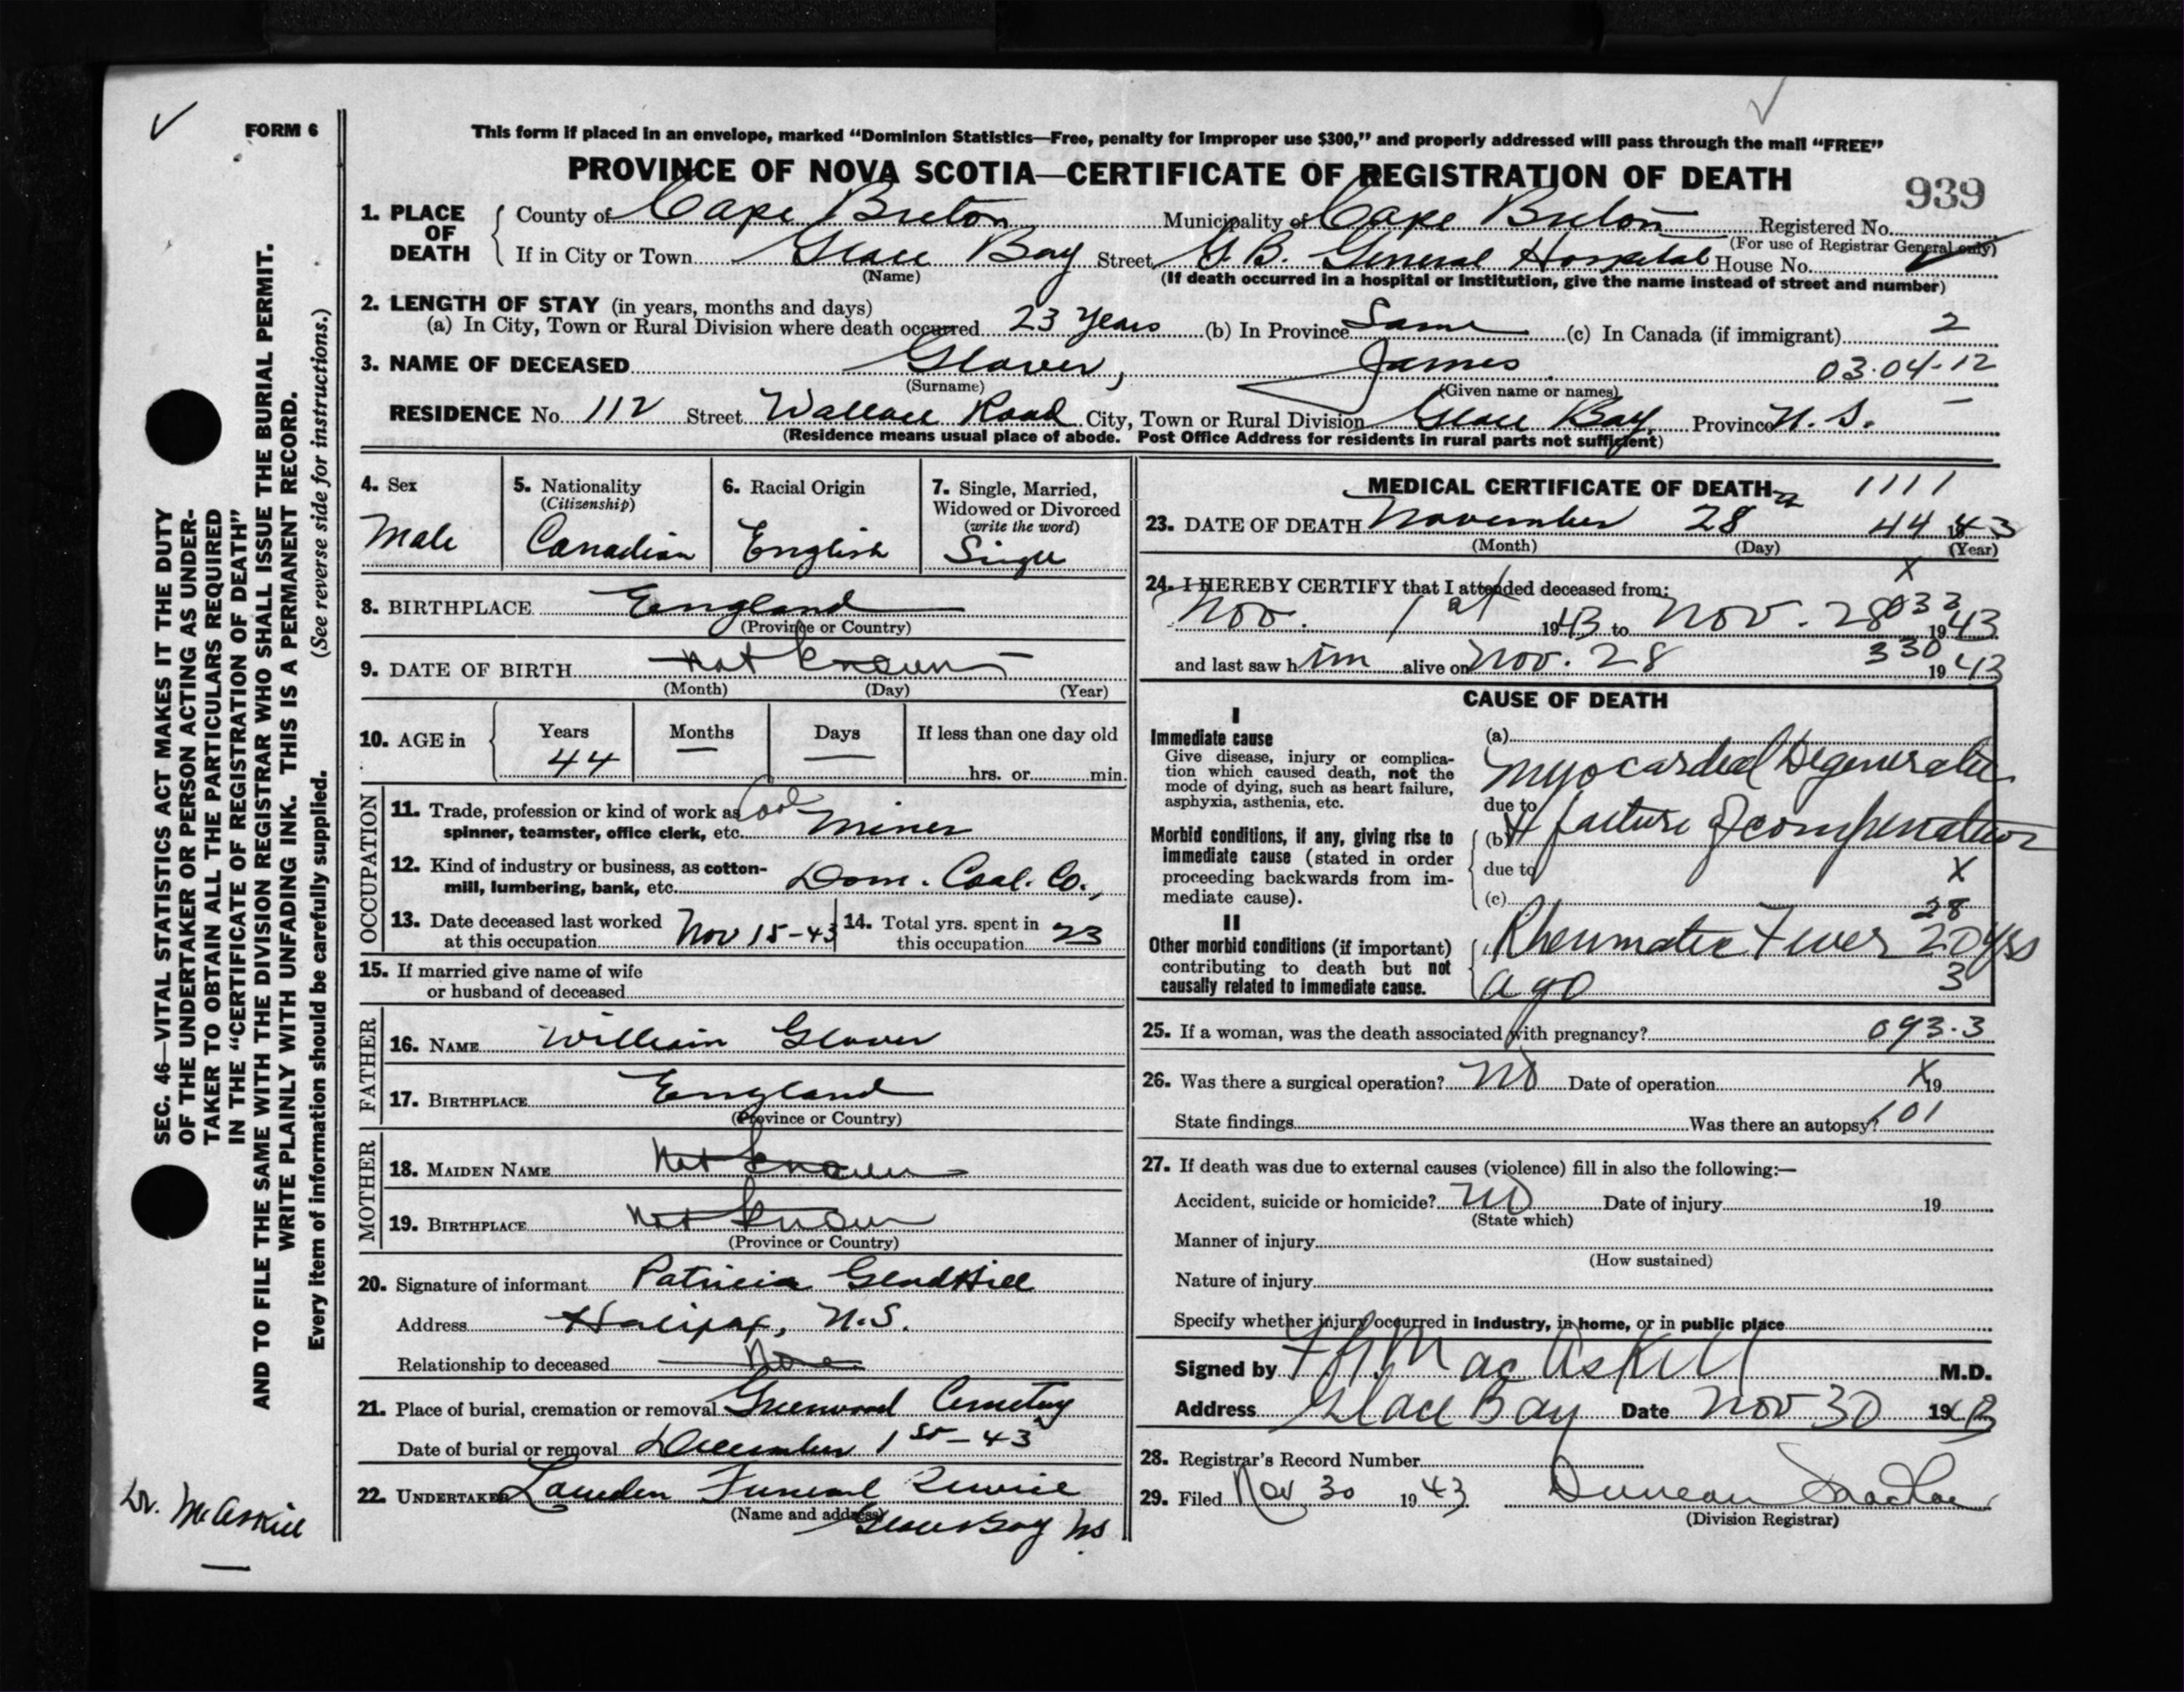 FORM 6
This form if placed in an envelope, marked “Dominion Statistics—Free, penalty for improper use $300,” and properly addressed will pass through the mail “FREE”
PROVINCE OF NOVA SCOTIA—CERTIFICATE OF REGISTRATION OF DEATH
939
1. PLACE OF DEATH
County of Cape Breton Municipality of Cape Breton Registered No.
(For use of Registrar General only)
If in City or Town Glace Bay Street G.B. General Hospital House No.
(Name) (If death occurred in a hospital or institution, give the name instead of street and number)
2. LENGTH OF STAY (in years, months and days)
(a) In City, Town or Rural Division where death occurred 23 Years (b) In Province Same (c) In Canada (if immigrant) 2
3. NAME OF DECEASED Glover, James 03·04-12
(Surname) (Given name or names)
RESIDENCE No. 112 Street Wallace Road City, Town or Rural Division Glace Bay Province N.S.
(Residence means usual place of abode. Post Office Address for residents in rural parts not sufficient)
4. Sex
Male
5. Nationality
(Citizenship)
Canadian
6. Racial Origin
English
7. Single, Married,
Widowed or Divorced
(write the word)
Single
8. BIRTHPLACE England
(Province or Country)
9. DATE OF BIRTH not known
(Month) (Day) (Year)
10. AGE in
Years Months Days If less than one day old
44 — — hrs. or min.
OCCUPATION
11. Trade, profession or kind of work as Coal
spinner, teamster, office clerk, etc. miner
12. Kind of industry or business, as cotton-
mill, lumbering, bank, etc. Dom. Coal. Co.,
13. Date deceased last worked
at this occupation Nov 15-43
14. Total yrs. spent in
this occupation 23
15. If married give name of wife
or husband of deceased
FATHER
16. NAME William Glover
17. BIRTHPLACE England
(Province or Country)
MOTHER
18. MAIDEN NAME Not known
19. BIRTHPLACE Not known
(Province or Country)
20. Signature of informant Patricia Gladhill
Address Halifax, N.S.
Relationship to deceased None
21. Place of burial, cremation or removal Greenwood Cemetery
Date of burial or removal December 1st-43
22. UNDERTAKER Funeral Service
(Name and address)
Glace Bay NS
MEDICAL CERTIFICATE OF DEATH 1111
23. DATE OF DEATH November 28 44 1943
(Month) (Day) (Year)
X
24. I HEREBY CERTIFY that I attended deceased from:
Nov. 1st 1943 to Nov. 28 033 1943
and last saw him alive on Nov. 28 330 1943
CAUSE OF DEATH
I
Immediate cause
Give disease, injury or complica-
tion which caused death, not the
mode of dying, such as heart failure,
asphyxia, asthenia, etc.
(a)
Myocardial Degeneration
due to
Morbid conditions, if any, giving rise to
immediate cause (stated in order
proceeding backwards from im-
mediate cause).
(b) & failure of compensation
due to X
(c) 28
II
Other morbid conditions (if important)
contributing to death but not
causally related to immediate cause.
Rheumatic Fever 20 yrs
ago 3
25. If a woman, was the death associated with pregnancy? 093·3
26. Was there a surgical operation? No Date of operation X 19
State findings Was there an autopsy? 101
27. If death was due to external causes (violence) fill in also the following:—
Accident, suicide or homicide? No Date of injury 19
(State which)
Manner of injury
(How sustained)
Nature of injury
Specify whether injury occurred in industry, in home, or in public place
Signed by MacAskill M.D.
Address Glace Bay Date Nov 30 1943
28. Registrar's Record Number
29. Filed Nov 30 1943 Duncan
(Division Registrar)
SEC. 46—VITAL STATISTICS ACT MAKES IT THE DUTY
OF THE UNDERTAKER OR PERSON ACTING AS UNDER-
TAKER TO OBTAIN ALL THE PARTICULARS REQUIRED
IN THE “CERTIFICATE OF REGISTRATION OF DEATH”
AND TO FILE THE SAME WITH THE DIVISION REGISTRAR WHO SHALL ISSUE THE BURIAL PERMIT.
WRITE PLAINLY WITH UNFADING INK. THIS IS A PERMANENT RECORD.
Every item of information should be carefully supplied. (See reverse side for instructions.)
Dr. McAskill